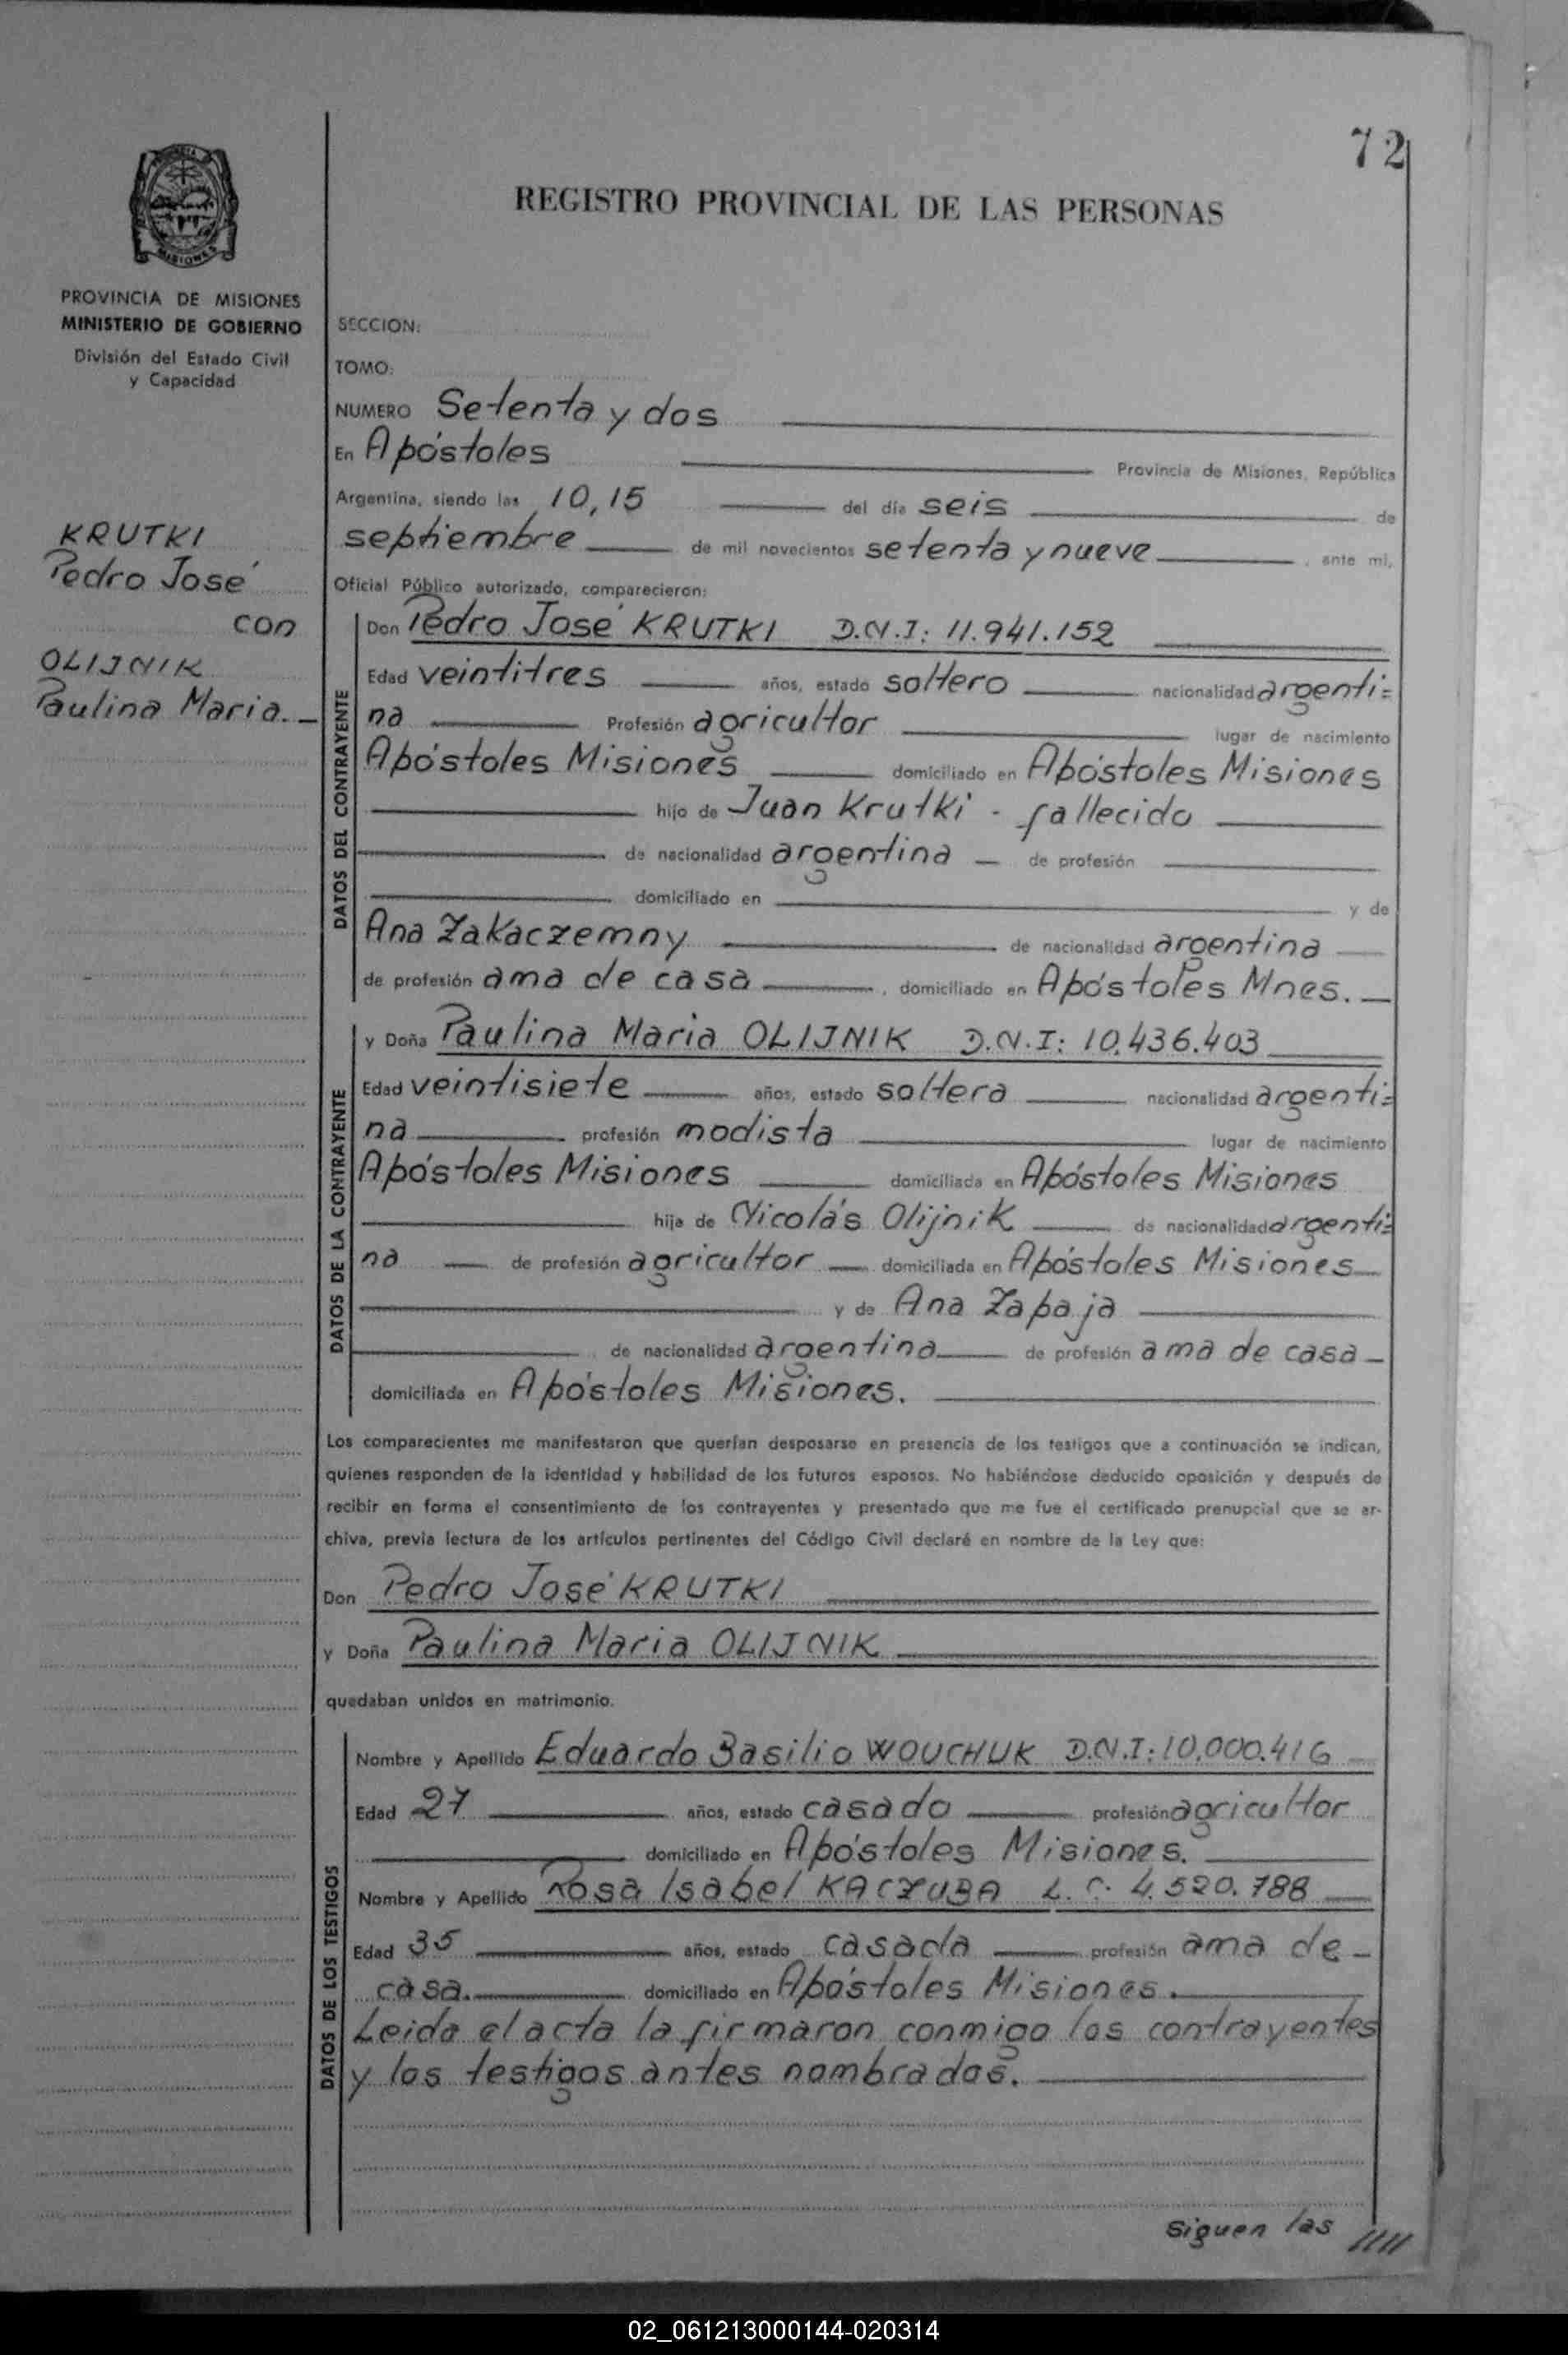 72
REGISTRO PROVINCIAL DE LAS PERSONAS
PROVINCIA
MISIONES
PROVINCIA DE MISIONES
MINISTERIO DE GOBIERNO
División del Estado Civil
y Capacidad
KRUTKI
Pedro José
con
OLIJNIK
Paulina Maria.
SECCION:
TOMO:
NUMERO Setenta y dos
En Apóstoles Provincia de Misiones, República
Argentina, siendo las 10,15 del día seis de
septiembre de mil novecientos setenta y nueve, ante mi,
Oficial Público autorizado, comparecieron:
DATOS DEL CONTRAYENTE
Don Pedro José KRUTKI D.N.I: 11.941.152
Edad veintitres años, estado soltero nacionalidad argenti=
na Profesión agricultor lugar de nacimiento
Apóstoles Misiones domiciliado en Apóstoles Misiones
hijo de Juan Krutki - fallecido
de nacionalidad argentina de profesión
domiciliado en y de
Ana Zakaczemny de nacionalidad argentina
de profesión ama de casa, domiciliado en Apóstoles Mnes.
DATOS DE LA CONTRAYENTE
y Doña Paulina Maria OLIJNIK D.N.I: 10.436.403
Edad veintisiete años, estado soltera nacionalidad argenti=
na profesión modista lugar de nacimiento
Apóstoles Misiones domiciliada en Apóstoles Misiones
hija de Nicolás Olijnik de nacionalidad argenti=
na de profesión agricultor domiciliada en Apóstoles Misiones
y de Ana Zapaja
de nacionalidad argentina de profesión ama de casa
domiciliada en Apóstoles Misiones.
Los comparecientes me manifestaron que querían desposarse en presencia de los testigos que a continuación se indican,
quienes responden de la identidad y habilidad de los futuros esposos. No habiéndose deducido oposición y después de
recibir en forma el consentimiento de los contrayentes y presentado que me fue el certificado prenupcial que se ar-
chiva, previa lectura de los artículos pertinentes del Código Civil declaré en nombre de la Ley que:
Don Pedro José KRUTKI
y Doña Paulina Maria OLIJNIK
quedaban unidos en matrimonio.
DATOS DE LOS TESTIGOS
Nombre y Apellido Eduardo Basilio WOUCHUK D.N.I: 10.000.416
Edad 27 años, estado casado profesión agricultor
domiciliado en Apóstoles Misiones.
Nombre y Apellido Rosa Isabel KACZUBA L.C. 4.520.788
Edad 35 años, estado casada profesión ama de
casa. domiciliado en Apóstoles Misiones.
Leida el acta la firmaron conmigo los contrayentes
y los testigos antes nombrados.
Siguen las /////
02_061213000144-020314